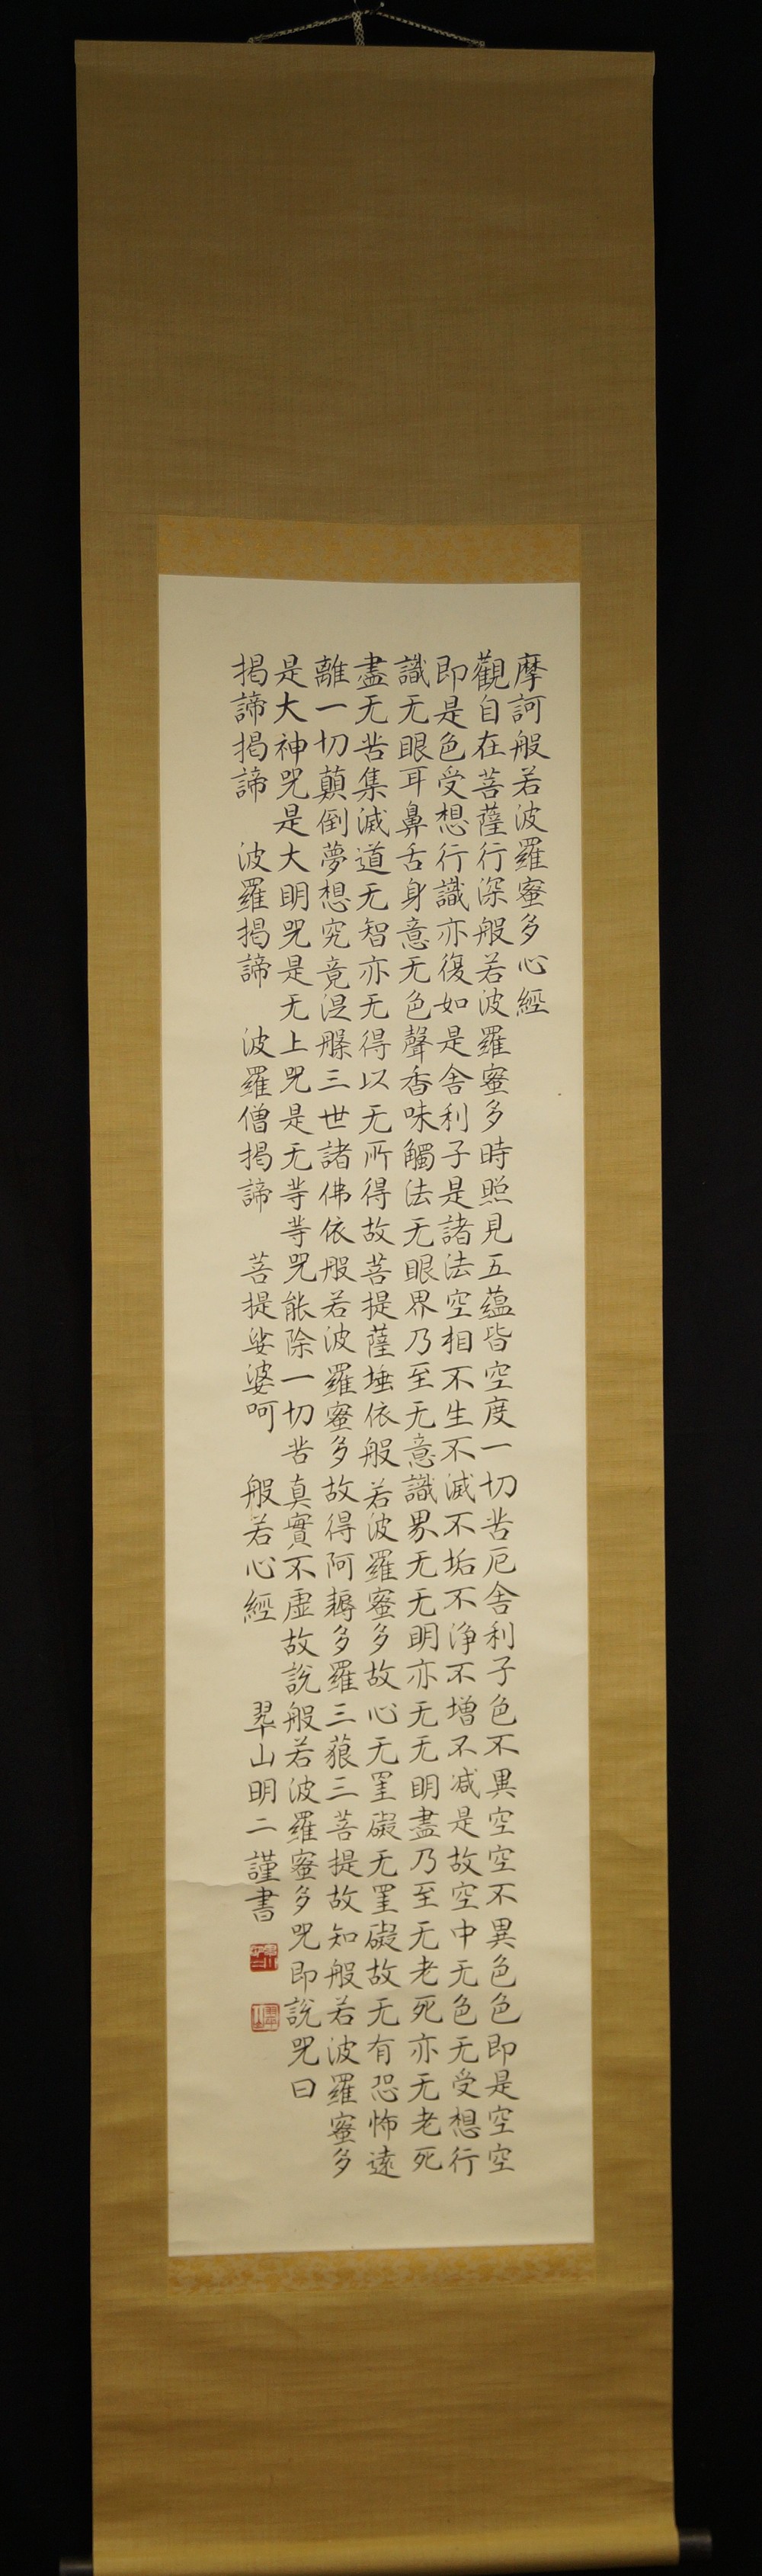 摩訶般若波羅蜜多心經
觀自在菩薩行深般若波羅蜜多時照見五蘊皆空度一切苦厄舎利子色不異空空不異色色即是空空
即是色受想行識亦復如是舎利子是諸法空相不生不滅不垢不浄不增不减是故空中无色无受想行
識无眼耳鼻舌身意无色聲香味觸法无眼界乃至无意識界无无明亦无无明盡乃至无老死亦无老死
盡无苦集滅道无智亦无得以无所得故菩提薩埵依般若波羅蜜多故心无罣礙无罣礙故无有恐怖遠
離一切顛倒夢想究竟涅槃三世諸佛依般若波羅蜜多故得阿耨多羅三藐三菩提故知般若波羅蜜多
是大神咒是大明咒是无上咒是无等等咒能除一切苦真實不虛故說般若波羅蜜多咒即說咒曰
揭諦揭諦 波羅揭諦 波羅僧揭諦 菩提娑婆呵 般若心經 翠山明二謹書